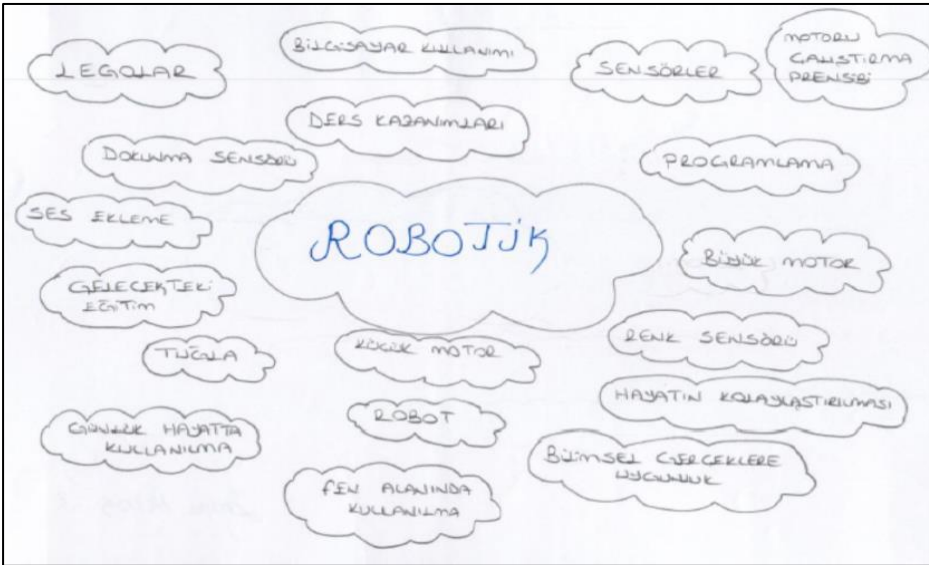 LEGOLAR
BİLGİSAYAR KULLANIMI
SENSÖRLER
MOTORU
ÇALIŞTIRMA
PRENSİBİ
DERS KAZANIMLARI
DOKUNMA SENSÖRÜ
PROGRAMLAMA
SES EKLEME
ROBOTİK
BÜYÜK MOTOR
GELECEKTEKİ
EĞİTİM
RENK SENSÖRÜ
TUĞLA
KÜÇÜK MOTOR
HAYATIN KOLAYLAŞTIRILMASI
ROBOT
GÜNLÜK HAYATTA
KULLANILMA
BİLİMSEL GERÇEKLERE
UYGUNLUK
FEN ALANINDA
KULLANILMA